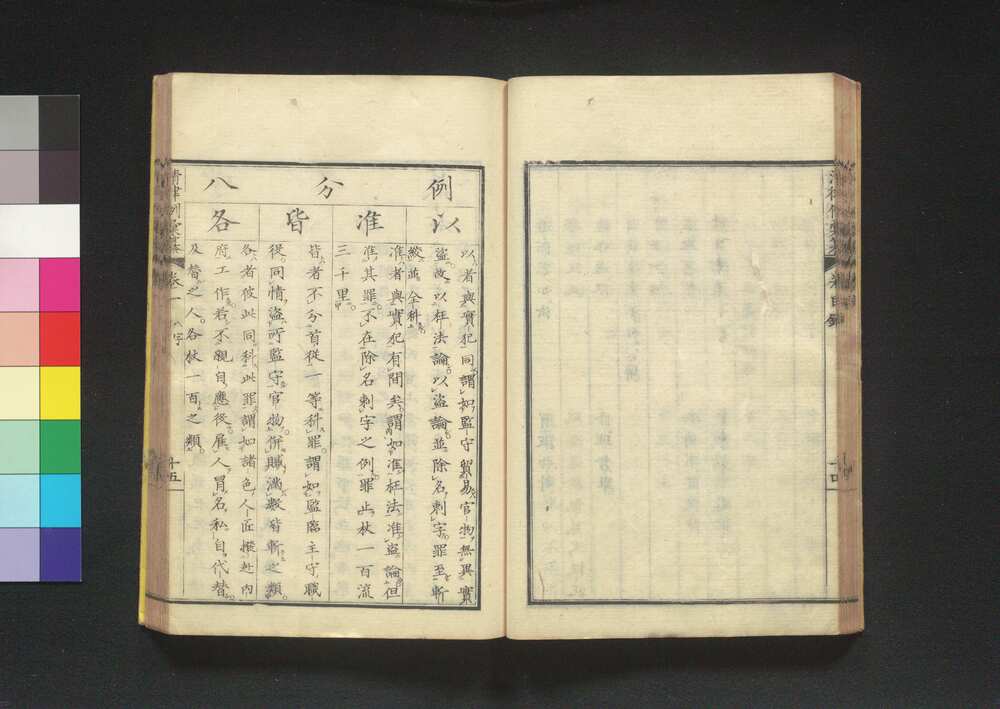 例分八
以
以者與實犯同謂如監守貿易官物無異實
盜故以枉法論以盜論並除名刺字罪至斬
絞並全科
准
准者與實犯有間矣謂如准枉法准盜論但
准其罪不在除名刺字之例罪止杖一百流
三千里
皆
皆者不分首從一等科罪謂如監臨主守職
役同情盜所監守官物併贓滿數皆斬之類
各
各者彼此同科此罪謂如諸色人匠撥赴內
府工作若不親自應役雇人冒名私自代替
及替之人各杖一百之類
清律例彙纂 卷一 八字 十五